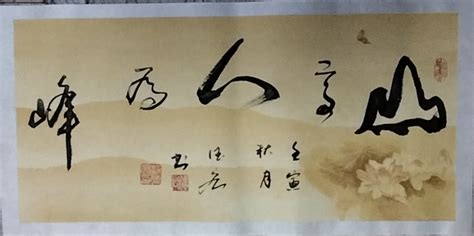 山高人为峰
壬寅
秋月
书